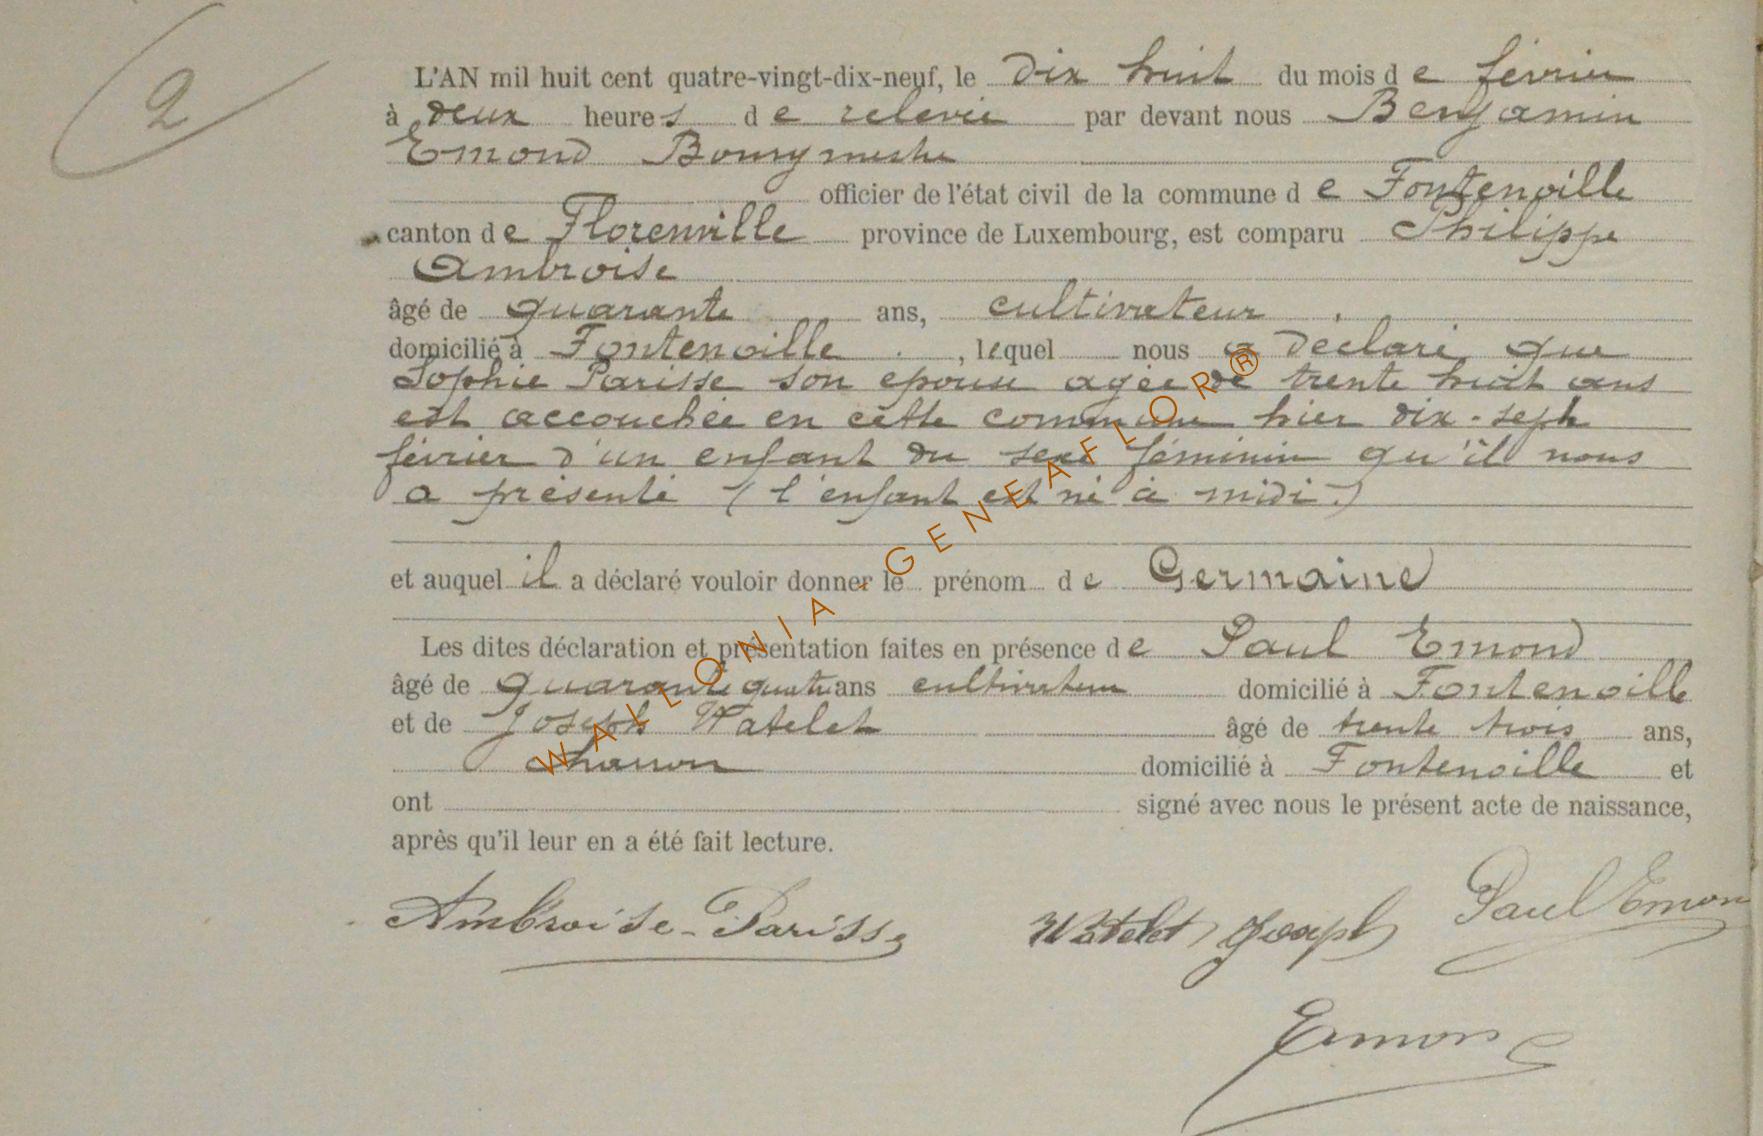 2
L'AN mil huit cent quatre-vingt-dix-neuf, le dix huit du mois de février
à deux heures de relevée par devant nous Benjamin
Emond Bourgmestre
officier de l'état civil de la commune de Fontenoille
canton de Florenville province de Luxembourg, est comparu Philippe
Ambroise
âgé de quarante ans, cultivateur
domicilié à Fontenoille, lequel nous a déclaré que
Sophie Parisse son épouse agée de trente huit ans
est accouchée en cette commune hier dix-sept
février d'un enfant du sexe féminin qu'il nous
a présenté (l'enfant est né à midi.)
et auquel il a déclaré vouloir donner le prénom de Germaine
Les dites déclaration et présentation faites en présence de Paul Emond
âgé de quarante quatre ans cultivateur domicilié à Fontenoille
et de Joseph Watelet âgé de trente trois ans,
charron domicilié à Fontenoille et
ont signé avec nous le présent acte de naissance,
après qu'il leur en a été fait lecture.
Ambroise-Parisse Watelet Joseph Paul Emon
Emond
WALLONIA - GENEAFLOR®